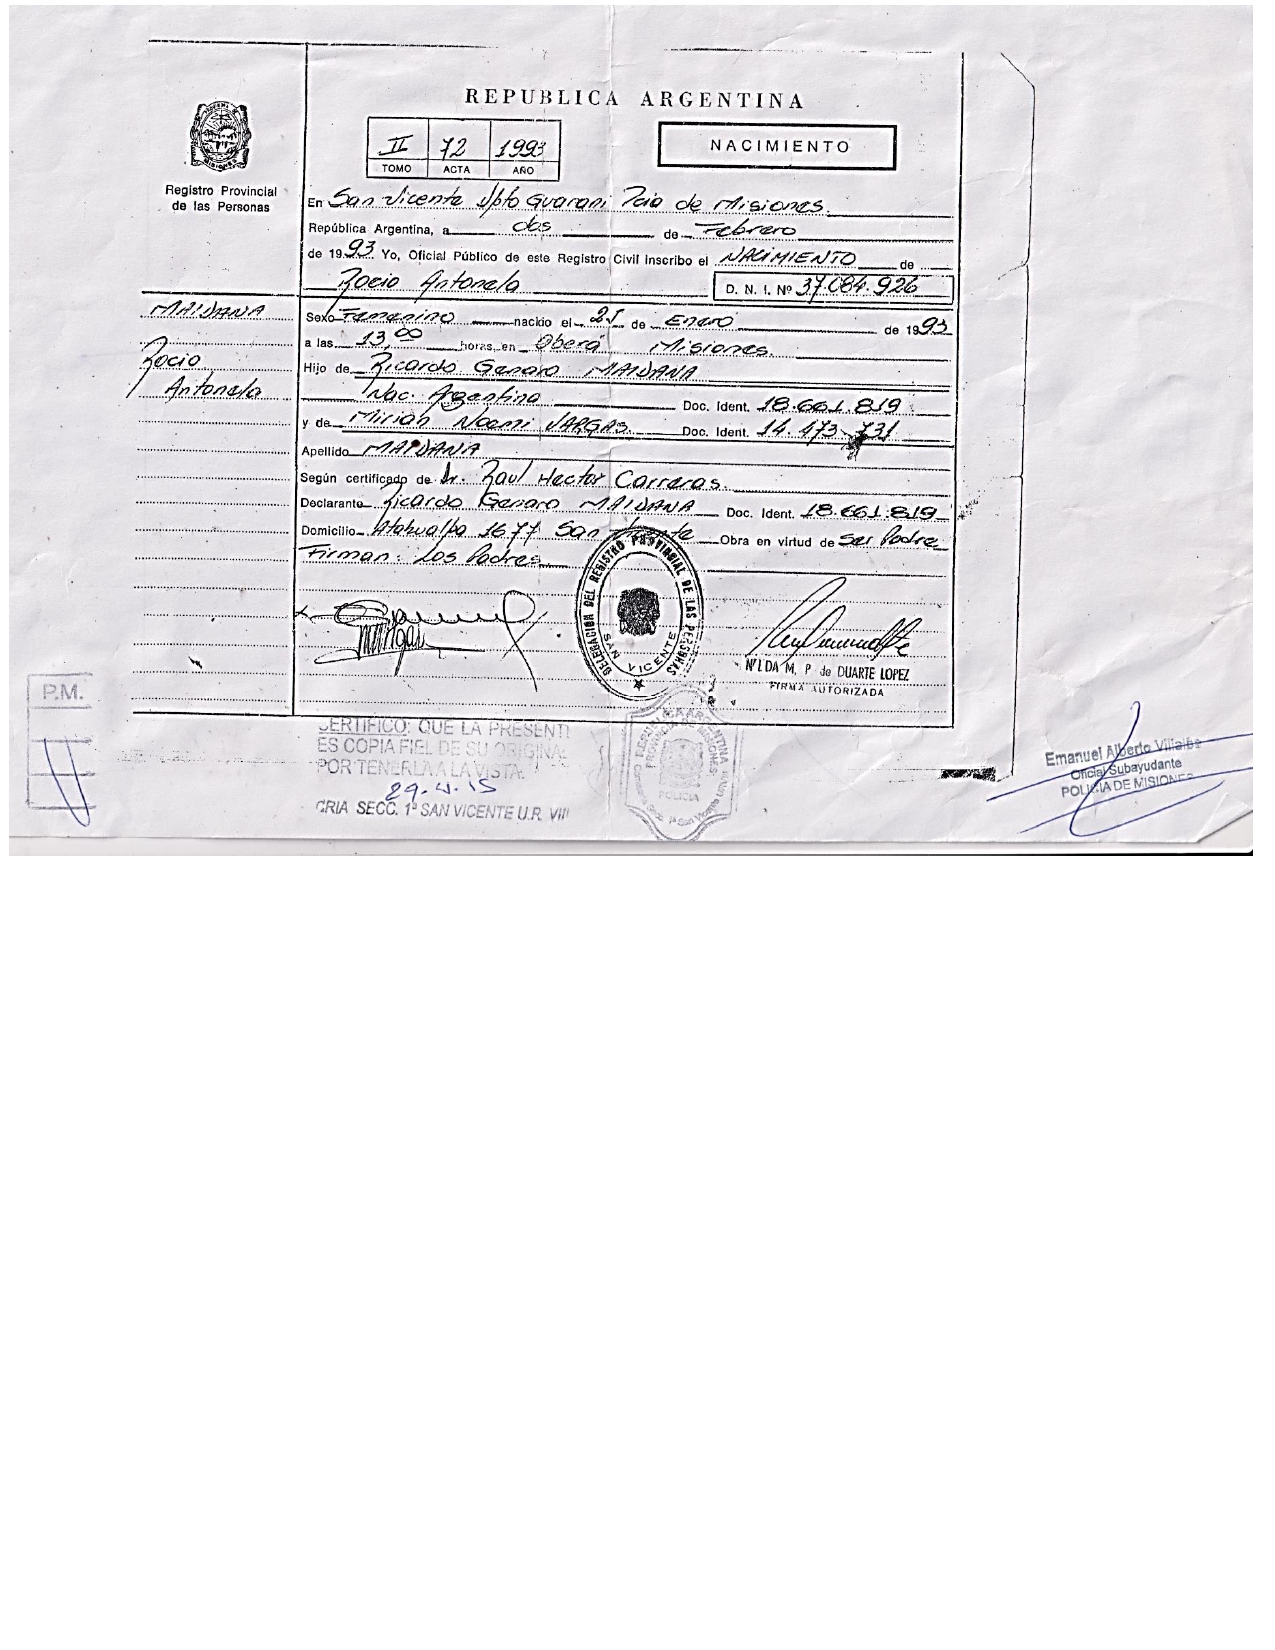 REPUBLICA ARGENTINA
II 72 1993
TOMO ACTA AÑO
NACIMIENTO
Registro Provincial
de las Personas
En San Vicente Dpto Guarani Pcia de Misiones
República Argentina, a dos de Febrero
de 1993 Yo, Oficial Público de este Registro Civil Inscribo el NACIMIENTO de
Rocio Antonela D. N. I. Nº 37.084.926
MAIDANA
Rocio
Antonela
Sexo Femenino nacido el de Enero de 1993
a las 13,00 horas, en Oberá Misiones.
Hijo de Ricardo Genaro MAIDANA
Nac. Argentina Doc. Ident. 18.661.819
y de Mirian Noemi VARGAS Doc. Ident. 14.473.731
Apellido MAIDANA
Según certificado de Dr. Raul Hector Carreras.
Declarante Ricardo Genaro MAIDANA Doc. Ident. 18.661.819
Domicilio Atahualpa 1677 San Obra en virtud de Ser Padre
Firman: Los Padres
DELEGACION DEL REGISTRO PROVINCIAL DE LAS PERSONAS
SAN VICENTE
NILDA M. P de DUARTE LOPEZ
FIRMA AUTORIZADA
P.M.
CERTIFICO: QUE LA PRESENTE
ES COPIA FIEL DE SU ORIGINAL
POR TENERLA A LA VISTA.
29-4-15
CRIA SECC. 1ª SAN VICENTE U.R. VIII
POLICIA
Emanuel Alberto Villalba
Oficial Subayudante
POLICIA DE MISIONES